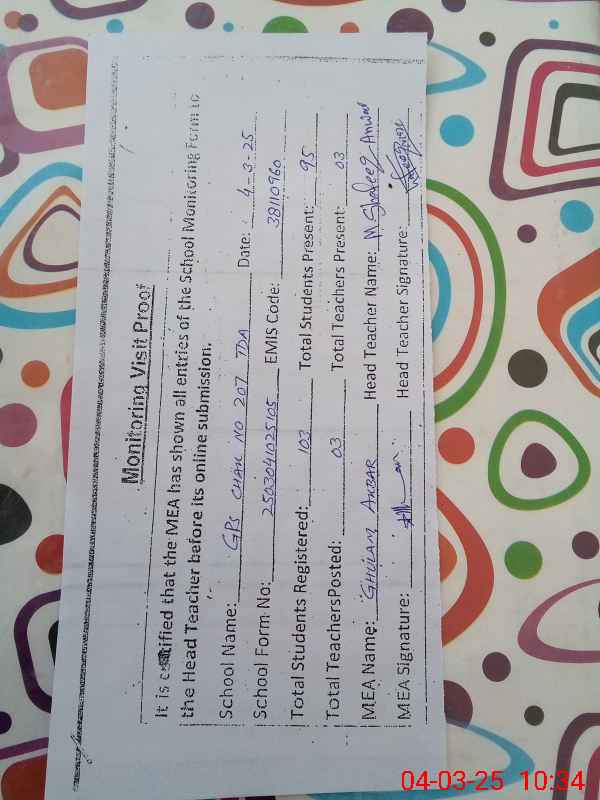 Monitoring Visit Proof
It is certified that the MEA has shown all entries of the School Monitoring Form to
the Head Teacher before its online submission.
School Name: GPS CHAK NO 207 TDA Date: 4-3-25
School Form No: 2503041025105 EMIS Code: 38110960
Total Students Registered: 103 Total Students Present: 95
Total Teachers Posted: 03 Total Teachers Present: 03
MEA Name: GHULAM AKBAR Head Teacher Name: M Shafeeq Anwar
MEA Signature: Head Teacher Signature:
04-03-25 10:34